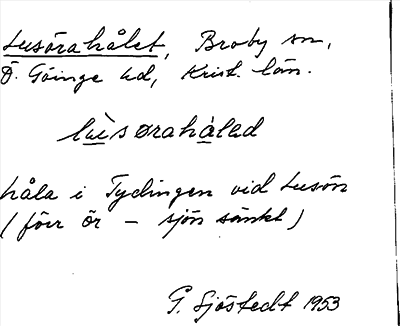 Lusörahålet, Broby sn,
Ö. Göinge hd, Krist. län.
lùsørahåled
håla i Tydingen vid Lusön
(förr ör - sjön sänkt)
G. Sjöstedt 1953